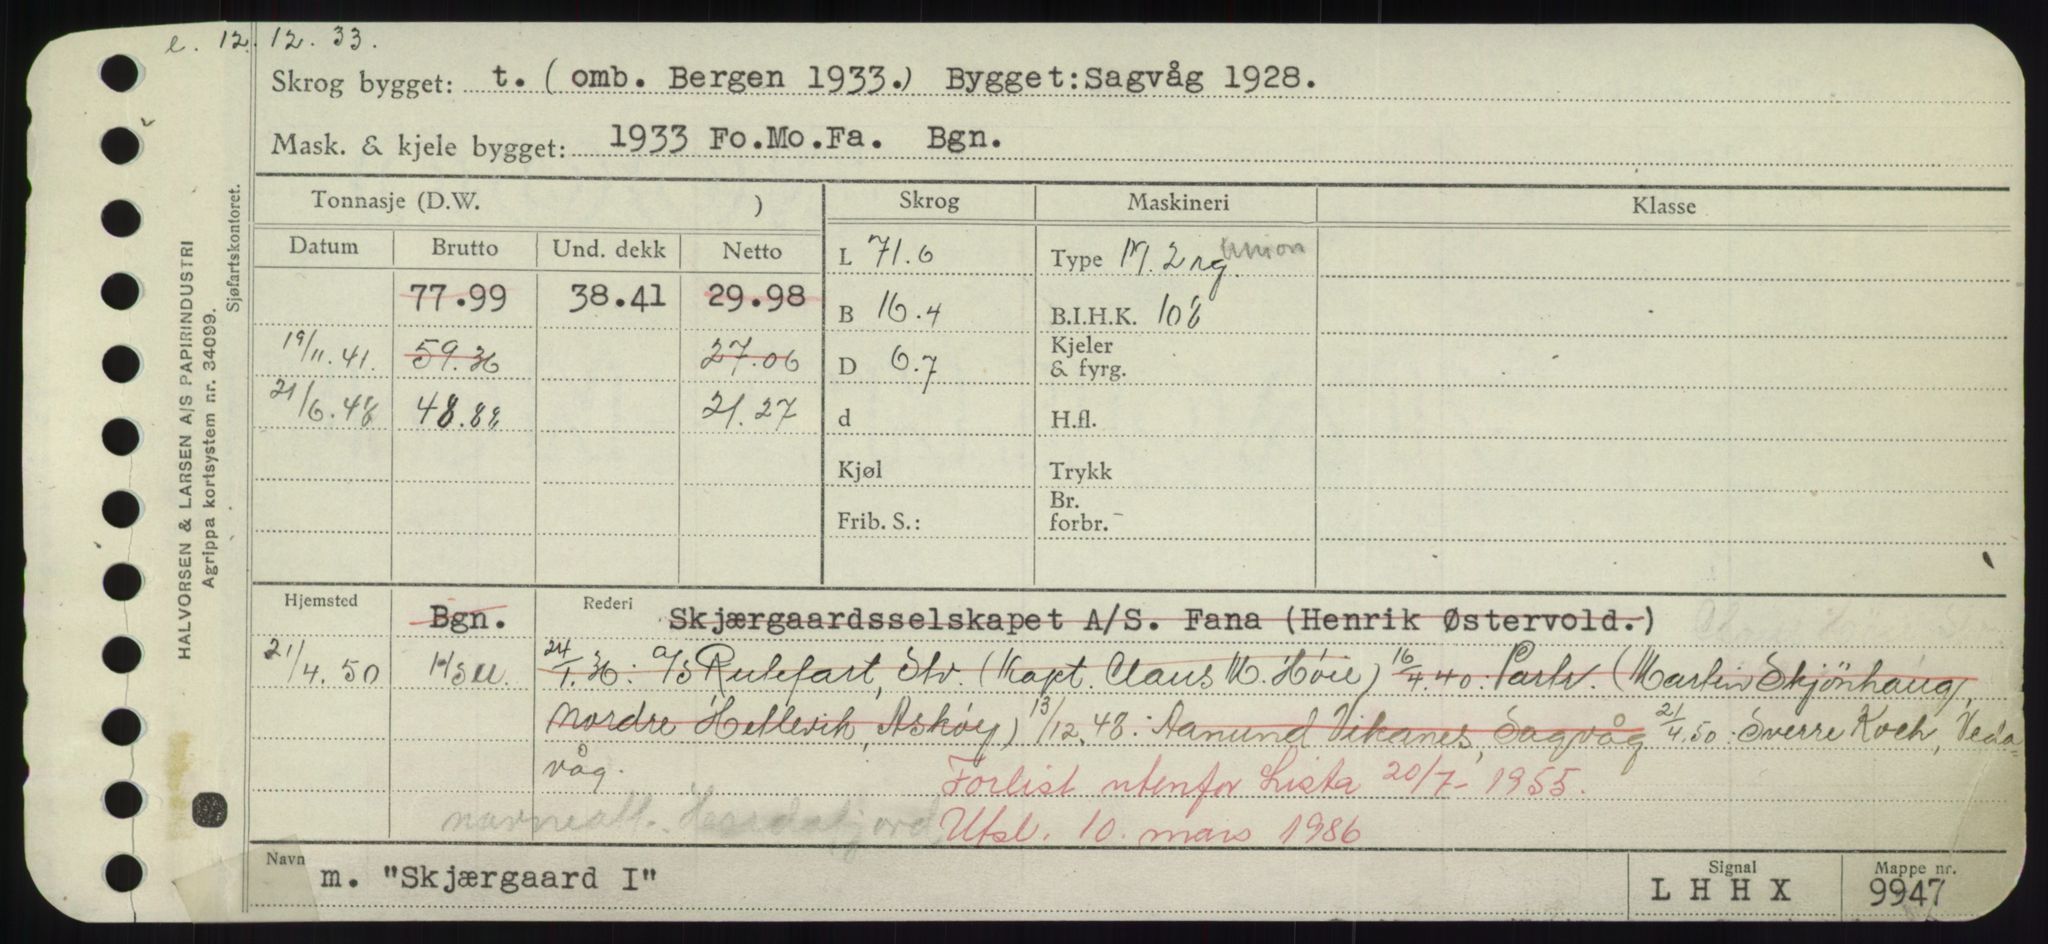 e. 12.12.33.
Skrog bygget: t. (omb. Bergen 1933.) Bygget:Sagvåg 1928.
Mask. & kjele bygget: 1933 Fo.Mo.Fa. Bgn.
HALVORSEN & LARSEN A/S PAPIRINDUSTRI
Agrippa kortsystem nr. 34099.
Sjøfartskontoret.
Tonnasje (D.W. ) Skrog Maskineri Klasse
Datum Brutto Und. dekk Netto L 71.6 Type M. 2 rg. Union
77.99 38.41 29.98 B 16.4 B.I.H.K. 108
19/11.41. 59.36 27.06 D 6.7 Kjeler & fyrg.
21/6.48 48.88 21.27 d H.fl.
Kjøl Trykk
Frib. S.: Br. forbr.
Hjemsted Bgn. Rederi Skjærgaardsselskapet A/S. Fana (Henrik Østervold.)
21/4.50 H3M. 24/1.36: A/S Rutefart, Slv. (Kapt. Claus M. Høie) 16/4.40: Partr. (Martin Skjönhaug,
Nordre Hetlevik, Askøy) 13/12.48: Aanund Vikanes, Sagvåg 21/4.50: Sverre Koch, Veda-
våg. Forlist utenfor Lista 20/7-1955.
navneatt. Utsl. 10. mars 1986
Navn m. "Skjærgaard I" Signal LHHX Mappe nr. 9947